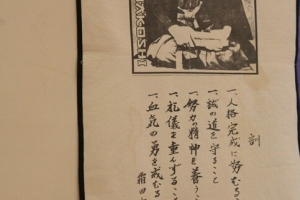 AKOSHI
訓
一、人格完成に努むる
一、誠の道を守ること
一、努力の精神を養うこ
一、礼儀を重んずるこ
一、血気の勇を戒むる